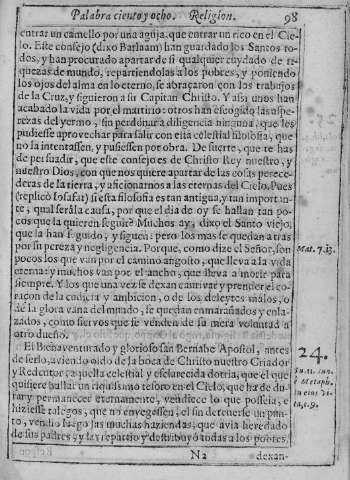 Palabra ciento y ocho. Religion. 98
entrar un camello por una aguja, que entrar un rico en el Cie-
lo. Este consejo (dixo Barlaam) han guardado los Santos to-
dos, y han procurado apartar de si qualquier cuydado de ri-
quezas de mundo, repartiendolas a los pobres, y poniendo
los ojos del alma en lo eterno, se abraçaron con los trabajos
de la Cruz, y siguieron a su Capitan Christo. Y assi unos han
acabado la vida por el martirio: otros han escogido las aspe-
rezas del yermo, sin perdonar a diligencia ninguna, que les
pudiesse aprovechar para salir con esta celestial filosofia, que
no la intentassen, y pusiessen por obra. De suerte, que te has
de persuadir, que este consejo es de Christo Rey nuestro, y
nuestro Dios, con que nos quiere apartar de las cosas perece-
deras de la tierra, y aficionarnos a las eternas del Cielo. Pues
(replicò Iosafat) si esta filosofia es tan antigua, y tan importan-
te, qual serà la causa, por que el dia de oy se hallan tan po-
cos que la quieren seguir? Muchos ay, dixo el Santo viejo,
que la han seguido, y siguen: pero los mas se quedan atras
por su pereza y negligencia. Porque, como dize el Señor, son
pocos los que van por el camino angosto, que lleva a la vida
eterna: y muchos van por el ancho, que lleva a morir para
siempre. Y los que una vez se dexan cautivar y prender el co-
raçon de la cudicia y ambicion, o de los deleytes malos, o
de la gloria vana del mundo, se quedan enmarañados y enla-
zados, como siervos que se venden de su mera voluntad a
otro dueño.
Mat. 7.13.
El Bienaventurado y glorioso san Bernabe Apostol, antes
de serlo, aviendo oido de la boca de Christo nuestro Criador
y Redentor aquella celestial y esclarecida dotrina, que el que
quisiere hallar un riquissimo tesoro en el Cielo, que ha de du-
rar y permanecer eternamente, vendiesse lo que posseia, e
hiziesse talegos, que no envegessen, el sin detenerse un pun-
to, vendio luego las muchas haziendas, que avia heredado
de sus padres, y las repartio y distribuyò todas a los pobres,
24.
N 2 dexan-